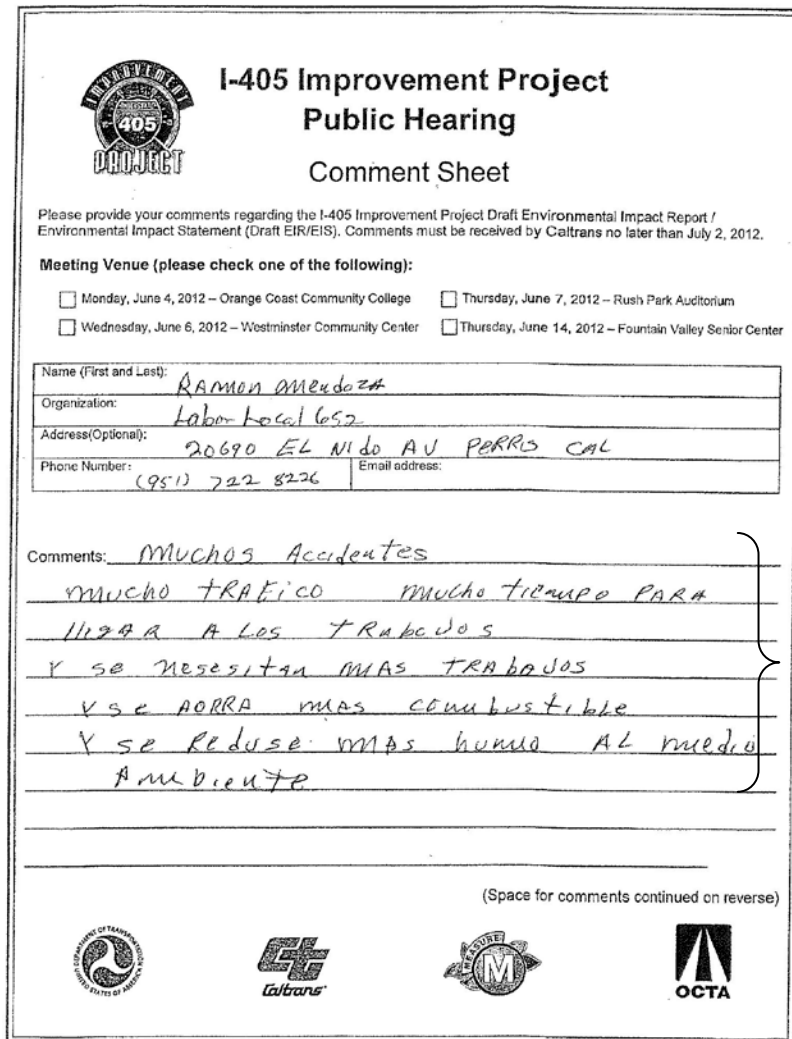 IMPROVEMENT
INTERSTATE
405
PROJECT
I-405 Improvement Project
Public Hearing
Comment Sheet
Please provide your comments regarding the I-405 Improvement Project Draft Environmental Impact Report /
Environmental Impact Statement (Draft EIR/EIS). Comments must be received by Caltrans no later than July 2, 2012.
Meeting Venue (please check one of the following):
Monday, June 4, 2012 – Orange Coast Community College
Thursday, June 7, 2012 – Rush Park Auditorium
Wednesday, June 6, 2012 – Westminster Community Center
Thursday, June 14, 2012 – Fountain Valley Senior Center
Name (First and Last): RAMON MendozA
Organization: Labor Local 652
Address(Optional): 20690 EL Nido AV PERRIS CAL
Phone Number: (951) 722 8226
Email address:
Comments: Muchos Accidentes
mucho TRAFICO mucho tiempo PARA
llegar A Los TRabaJos
Y se nesesitan MAS TRAbaJos
Y se AORRA mas combustible
Y se Reduse mas humo AL medio
Ambiente
(Space for comments continued on reverse)
DEPARTMENT OF TRANSPORTATION
UNITED STATES OF AMERICA
Caltrans
MEASURE
M
OCTA